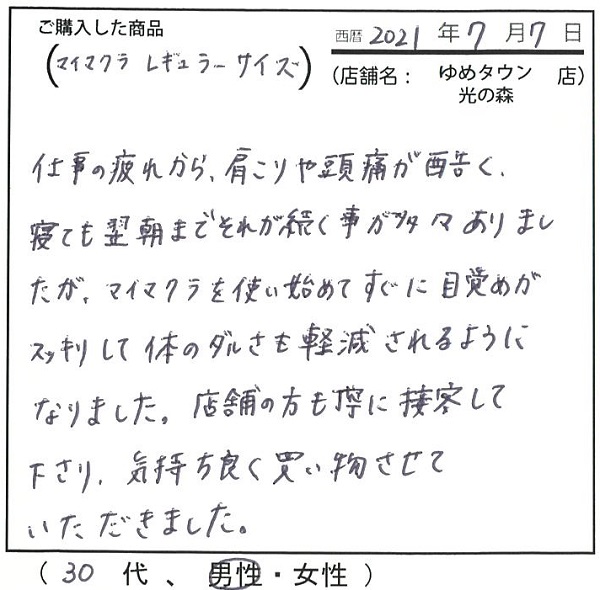 ご購入した商品
(マイマクラ レギュラーサイズ)
西暦 2021 年 7 月 7 日
(店舗名： ゆめタウン 光の森 店)
仕事の疲れから、肩こりや頭痛が酷く、
寝ても翌朝までそれが続く事が多々ありまし
たが、マイマクラを使い始めてすぐに目覚めが
スッキリして体のダルさも軽減されるように
なりました。店舗の方も丁寧に接客して
下さり、気持ち良く買い物させて
いただきました。
( 30 代、 男性・女性 )